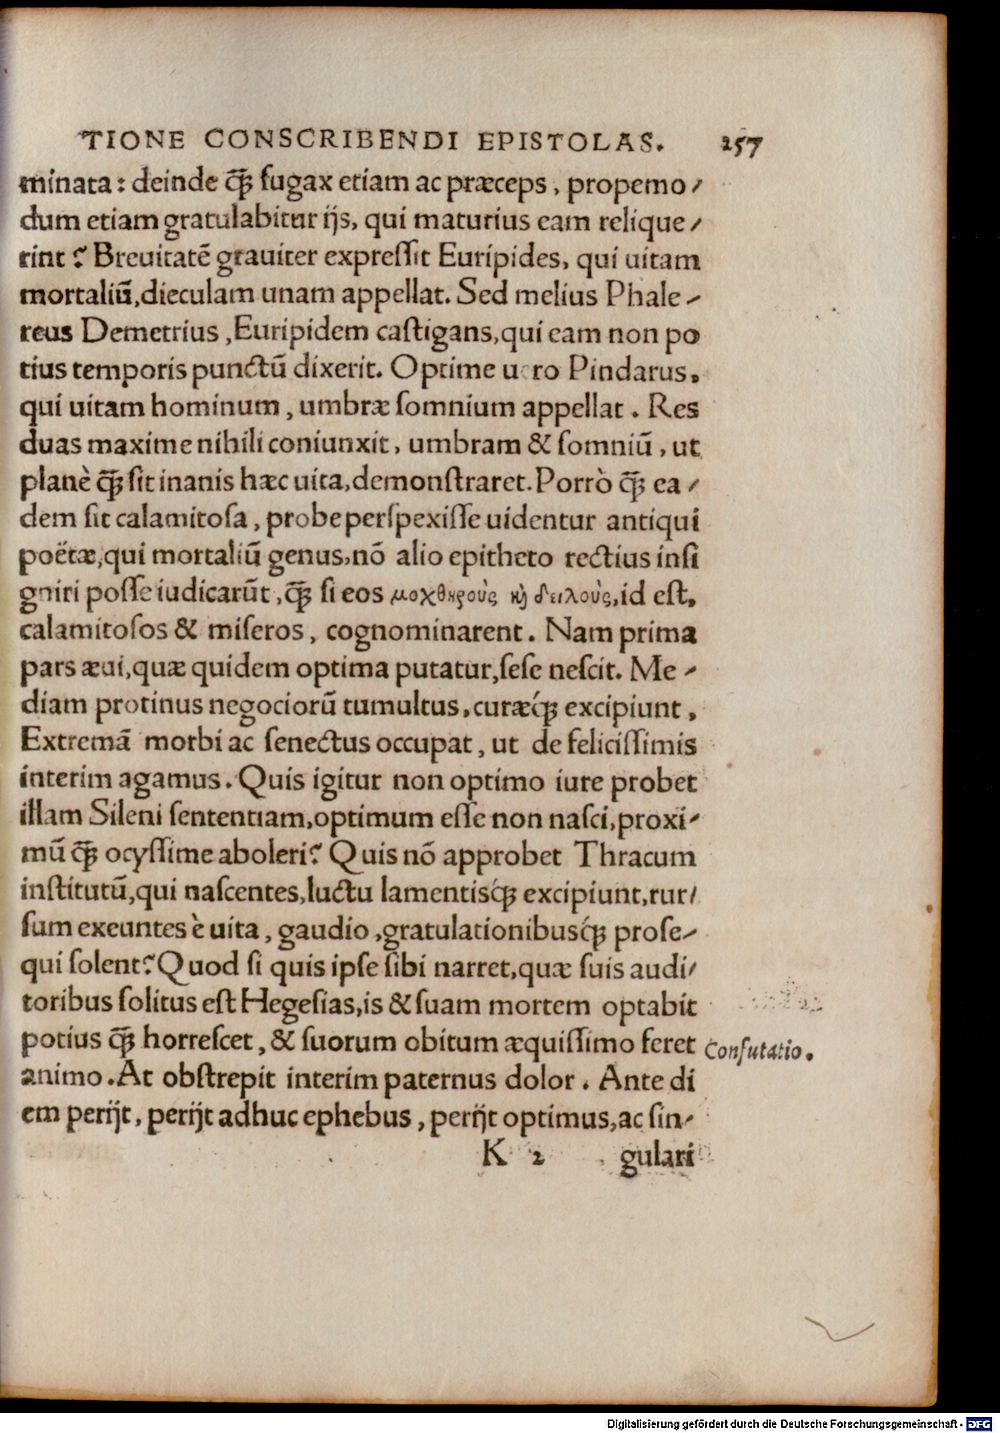 TIONE CONSCRIBENDI EPISTOLAS. 257
minata: deinde q̃ꝫ fugax etiam ac præceps, propemo/
dum etiam gratulabitur ijs, qui maturius eam relique/
rint? Breuitatẽ grauiter expressit Euripides, qui uitam
mortaliũ, dieculam unam appellat. Sed melius Phale/
reus Demetrius, Euripidem castigans, qui eam non po
tius temporis punctũ dixerit. Optime uero Pindarus,
qui uitam hominum, umbræ somnium appellat. Res
duas maxime nihili coniunxit, umbram & somniũ, ut
planè q̃ꝫ sit inanis hæc uita, demonstraret. Porrò q̃ꝫ ea/
dem sit calamitosa, probe perspexisse uidentur antiqui
poëtæ, qui mortaliũ genus, nõ alio epitheto rectius insi
gniri posse iudicarũt, q̃ꝫ si eos μοχθηροὺς ϗ δειλοὺς, id est,
calamitosos & miseros, cognominarent. Nam prima
pars æui, quæ quidem optima putatur, sese nescit. Me/
diam protinus negociorũ tumultus, curæq́ꝫ excipiunt,
Extremã morbi ac senectus occupat, ut de felicissimis
interim agamus. Quis igitur non optimo iure probet
illam Sileni sententiam, optimum esse non nasci, proxi/
mũ q̃ꝫ ocyssime aboleri? Quis nõ approbet Thracum
institutũ, qui nascentes, luctu lamentisq́ꝫ excipiunt, rur/
sum exeuntes è uita, gaudio, gratulationibusq́ꝫ prose/
qui solent? Quod si quis ipse sibi narret, quæ suis audi/
toribus solitus est Hegesias, is & suam mortem optabit
potius q̃ꝫ horrescet, & suorum obitum æquissimo feret
Confutatio.
animo. At obstrepit interim paternus dolor. Ante di
em perijt, perijt adhuc ephebus, perijt optimus, ac sin/
K 2 gulari
Digitalisierung gefördert durch die Deutsche Forschungsgemeinschaft - DFG